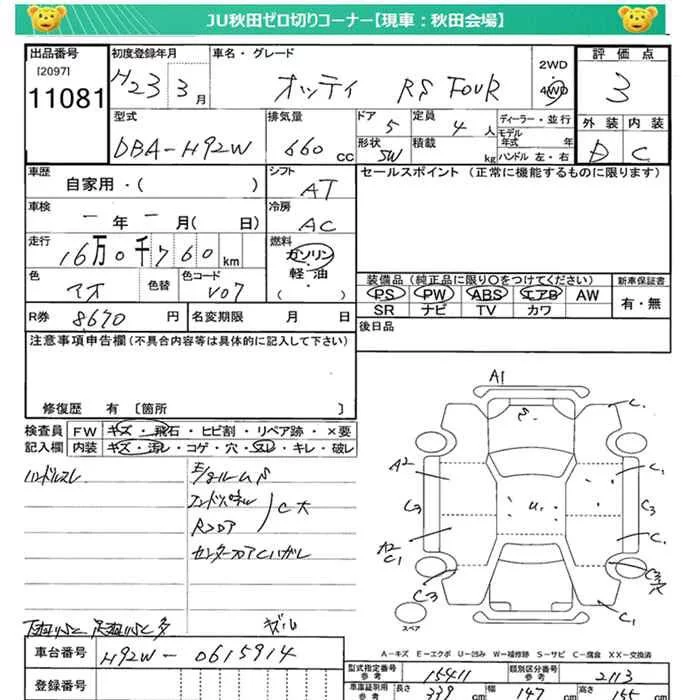 JU秋田ゼロ切りコーナー【現車：秋田会場】
出品番号
[2097]
11081
初度登録年月
H23 3 月
車名・グレード
オッティ RS FOUR
2WD
4WD
評価点
3
外装 内装
D C
型式
DBA-H92W
排気量
660 CC
ドア
5
定員
4 人
形状
5W
積載
kg
ディーラー・並行
モデル
年式 年
ハンドル 左・右
車歴
自家用・( )
シフト
AT
セールスポイント（正常に機能するものに限ります）
車検
ー年ー月( 日)
冷房
AC
走行
16万0千760 km
燃料
ガソリン
・
軽・油
( )
色
アオ
色替
色コード
V07
装備品（純正品に限り○をつけてください）
PS PW ABS エアB AW
SR ナビ TV カワ
新車保証書
有・無
R券 8,670 円
名変期限 月 日
後日品
注意事項申告欄（不具合内容等は具体的に記入して下さい）
修復歴 有 〔箇所 〕
検査員
記入欄
FW キズ・飛石・ヒビ割・リペア跡・×要
内装 キズ・汚レ・コゲ・穴・スレ・キレ・破レ
ハンドルスレ
E/gルームS
エンドパネル
Rフロア
C大
センターフロアCハガレ
A1
C.
A2
C1
C3
U1
C3
A2
C1
C.
C3
C1
スペア
A−キズ E−エクボ U−凹み W−補修跡 S−サビ C−腐食 XX−交換済
車台番号
H92W-0615914
登録番号
型式指定番号
参考
15411
類別区分番号
参考
2113
車庫証明用
参考
長さ
339 cm
幅
147 cm
高さ
155 cm